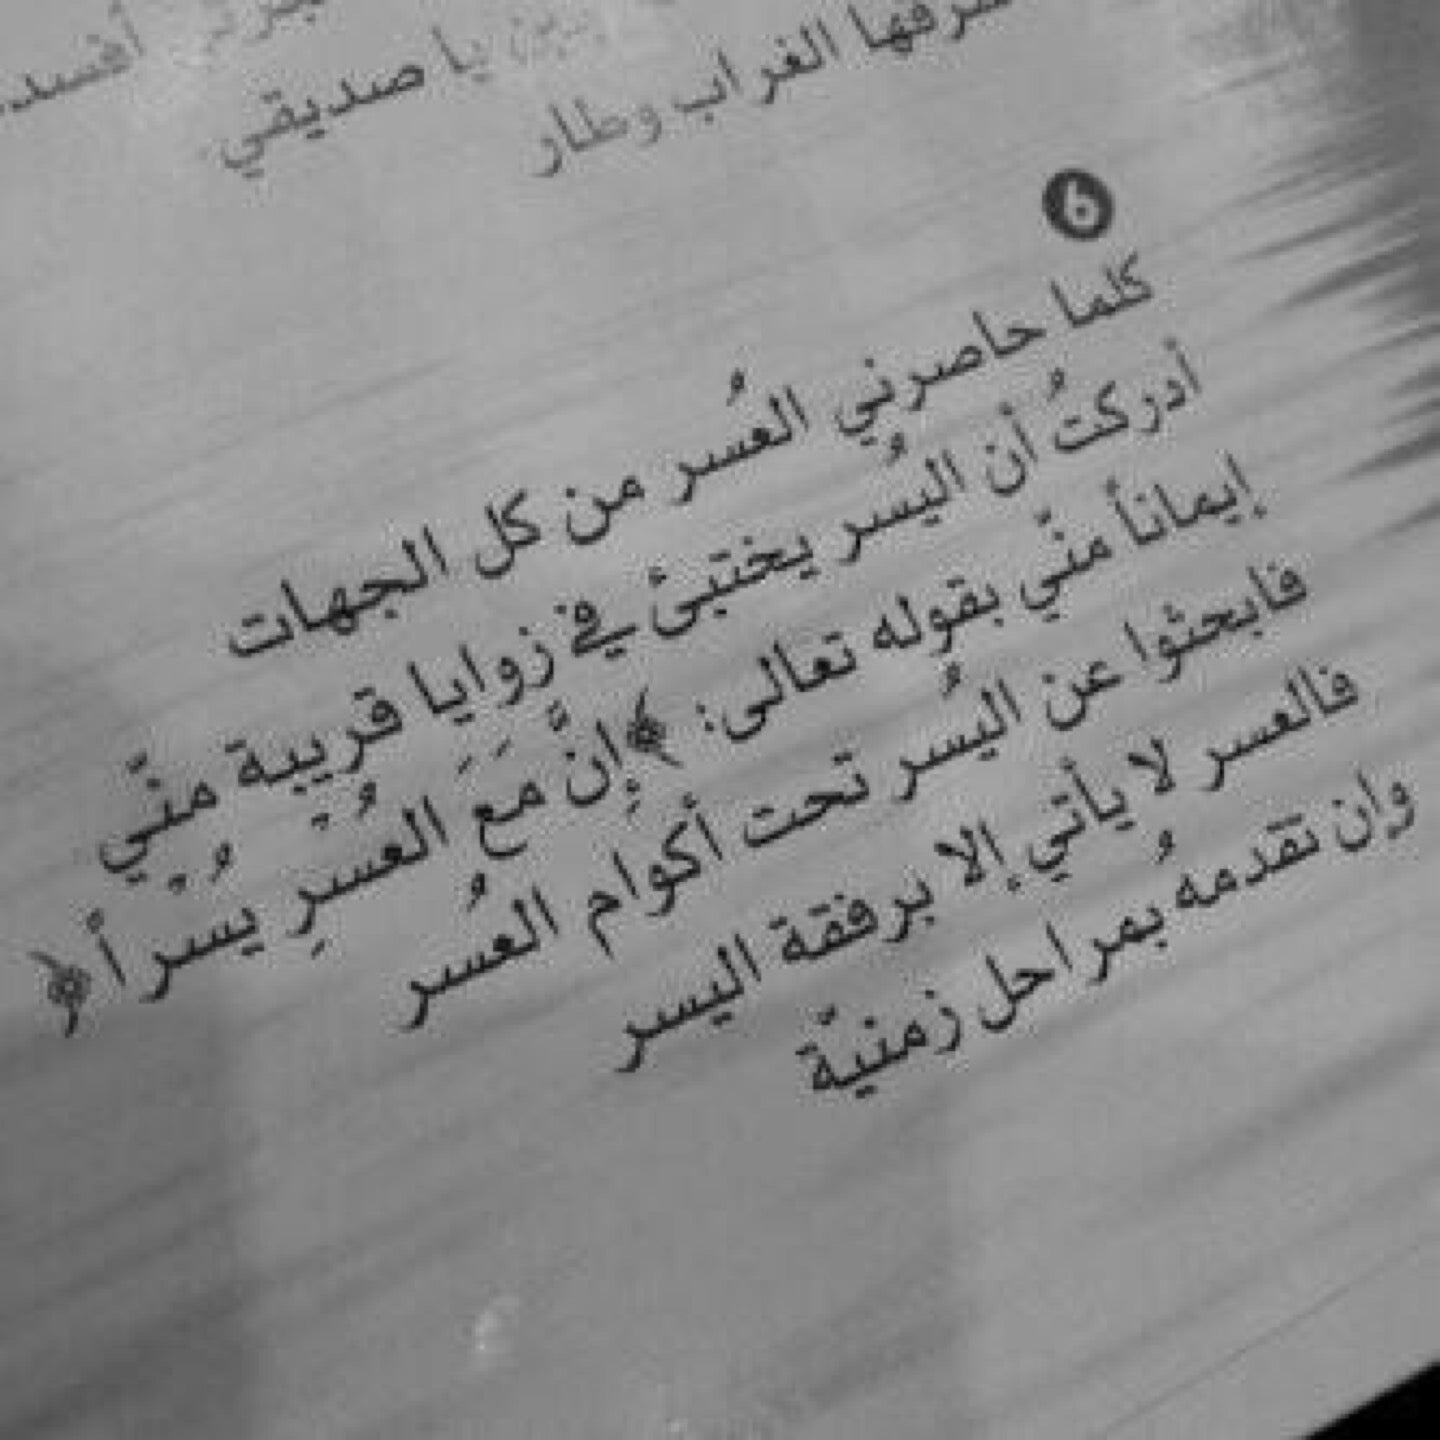 يا صديقي
الغراب وطار
6
كلما حاصرني العُسر من كل الجهات
أدركتُ أن اليُسر يختبئ في زوايا قريبة منّي
إيماناً منّي بقوله تعالى: ﴿إِنَّ مَعَ العُسْرِ يُسْراً﴾
فابحثوا عن اليُسر تحت أكوام العُسر
فالعسر لا يأتي إلا برفقة اليسر
وإن تقدمهُ بمراحل زمنيّة